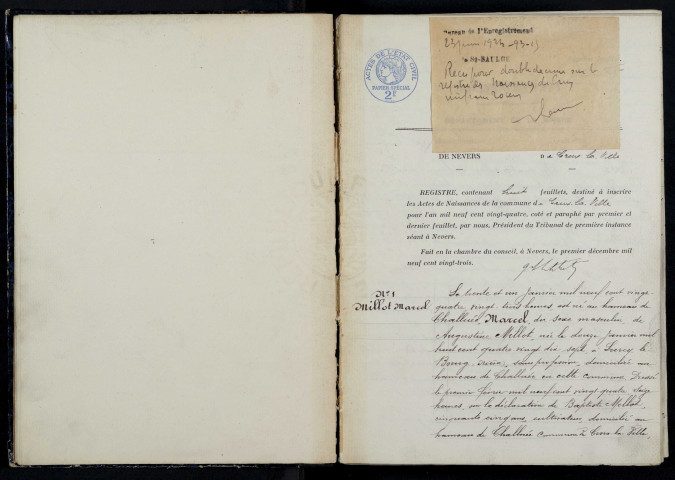 ACTES DE L'ETAT CIVIL
PAPIER SPECIAL
2F
Bureau de l'Enregistrement
St-SAULGE
Reçu pour double décime sur le
DE NEVERS
REGISTRE, contenant huit feuillets, destiné à inscrire
les Actes de Naissances de la commune de Crux-la-Ville
pour l'an mil neuf cent vingt-quatre, coté et paraphé par premier et
dernier feuillet, par nous, Président du Tribunal de première instance
séant à Nevers.
Fait en la chambre du conseil, à Nevers, le premier décembre mil
neuf cent vingt-trois.
N° 1
Millot Marcel
Le trente et un janvier mil neuf cent vingt
quatre, vingt-trois heures, est né au hameau de
Marcel, du sexe masculin, de
Augustine Millot, née le douze janvier mil
huit cent quatre vingt dix sept à
Bourg, sans profession, domiciliée au
hameau de en cette commune. Dressé
le premier février mil neuf cent vingt quatre, seize
heures, sur la déclaration de Baptiste Millot,
cinquante cinq ans, cultivateur, domicilié au
hameau de commune de Crux la Ville,